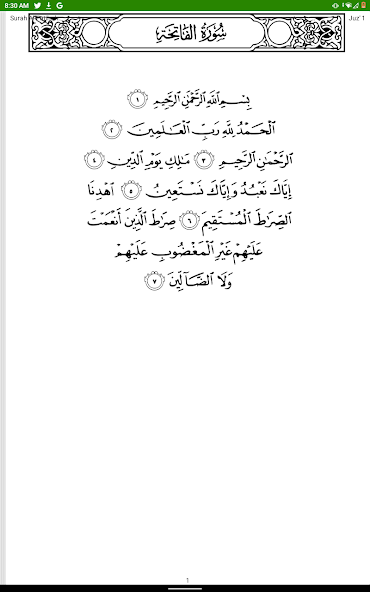 8:30 AM
Surah Juz'1
سُورَةُ الْفَاتِحَةِ
بِسْمِ ٱللَّهِ ٱلرَّحْمَٰنِ ٱلرَّحِيمِ ١
ٱلْحَمْدُ لِلَّهِ رَبِّ ٱلْعَٰلَمِينَ ٢
ٱلرَّحْمَٰنِ ٱلرَّحِيمِ ٣ مَٰلِكِ يَوْمِ ٱلدِّينِ ٤
إِيَّاكَ نَعْبُدُ وَإِيَّاكَ نَسْتَعِينُ ٥ ٱهْدِنَا
ٱلصِّرَٰطَ ٱلْمُسْتَقِيمَ ٦ صِرَٰطَ ٱلَّذِينَ أَنْعَمْتَ
عَلَيْهِمْ غَيْرِ ٱلْمَغْضُوبِ عَلَيْهِمْ
وَلَا ٱلضَّآلِّينَ ٧
1